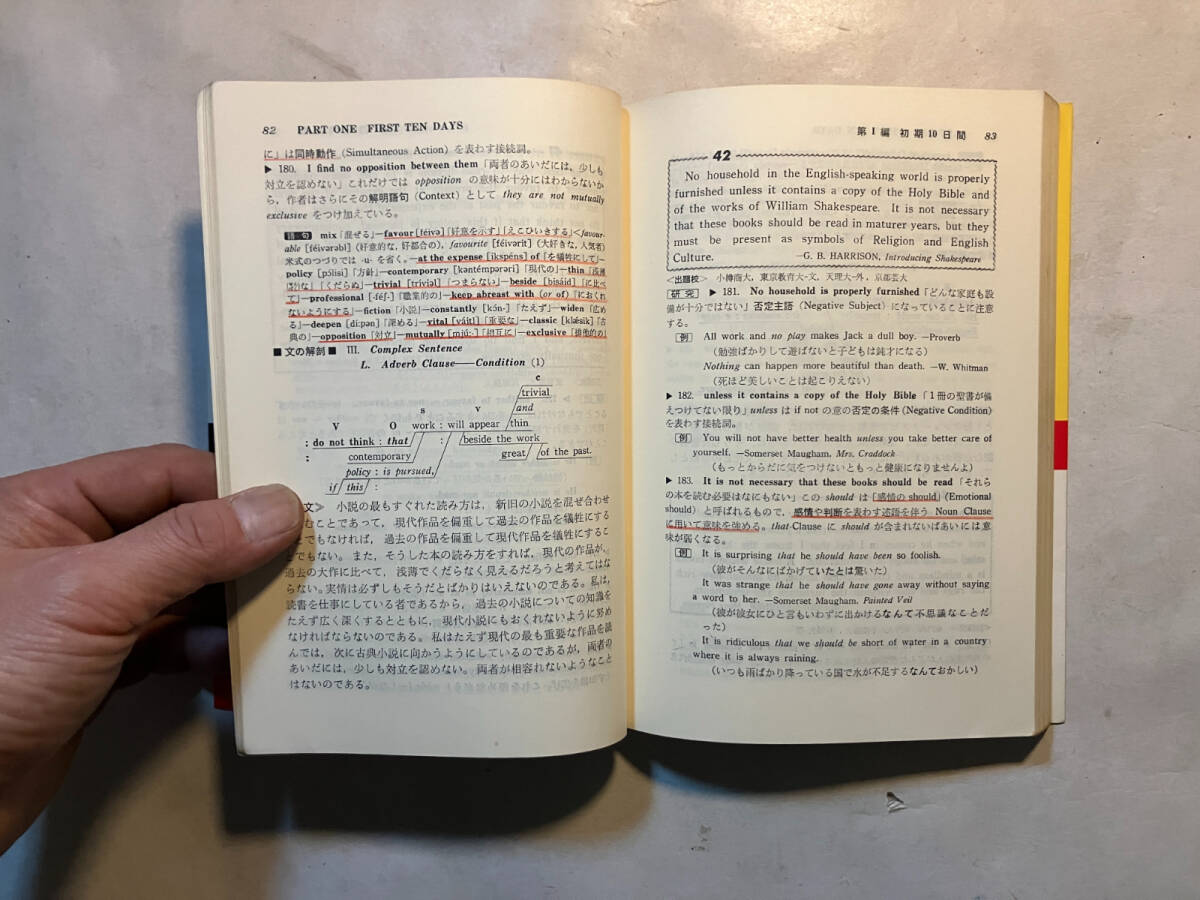 82 PART ONE FIRST TEN DAYS
に」は同時動作 (Simultaneous Action) を表わす接続詞。
▶ 180. I find no opposition between them「両者のあいだには、少しも
対立を認めない」これだけでは opposition の意味が十分にはわからないか
ら，作者はさらにその解明語句 (Context) として they are not mutually
exclusive をつけ加えている。
語句 mix「混ぜる」—favour [féivə]「好意を示す」「えこひいきする」<favour-
able [féivərəbl] (好意的な，好都合の)，favourite [féivərit] (大好きな，人気者)
米式のつづりでは -u- を省く。—at the expense [ikspéns] of「を犠牲にして」—
policy [pɔ́lisi]「方針」—contemporary [kəntémpərəri]「現代の」—thin「浅薄
な」「くだらぬ」—trivial [tríviəl]「つまらない」—beside [bisáid]「に比べ
て」—professional [-féʃ-]「職業的の」—keep abreast with (or of)「におくれ
ないようにする」—fiction「小説」—constantly [kɔ́n-]「たえず」—widen (広め
る)—deepen [díːpən]「深める」—vital [váitl]「重要な」—classic [klǽsik]「古
典の」—opposition「対立」—mutually [mjúː-]「相互に」—exclusive「排他的の」
■ 文の解剖 ■ III. Complex Sentence
L. Adverb Clause——Condition (1)
c
trivial
s v and
V O work : will appear thin
: do not think : that : beside the work
: contemporary great of the past.
policy : is pursued,
if this :
文> 小説の最もすぐれた読み方は，新旧の小説を混ぜ合わせ
むことであって，現代作品を偏重して過去の作品を犠牲にする
でもなければ，過去の作品を偏重して現代作品を犠牲にするこ
とでもない。また，そうした本の読み方をすれば，現代の作品が，
過去の大作に比べて，浅薄でくだらなく見えるだろうと考えてはな
らない。実情は必ずしもそうだとばかりはいえないのである。私は，
読書を仕事にしている者であるから，過去の小説についての知識を
たえず広く深くするとともに，現代小説にもおくれないように努め
なければならないのである。私はたえず現代の最も重要な作品を読
んでは，次に古典小説に向かうようにしているのであるが，両者の
あいだには，少しも対立を認めない。両者が相容れないようなこと
はないのである。
第Ⅰ編 初期10日間 83
42
No household in the English-speaking world is properly
furnished unless it contains a copy of the Holy Bible and
of the works of William Shakespeare. It is not necessary
that these books should be read in maturer years, but they
must be present as symbols of Religion and English
Culture. —G. B. HARRISON, Introducing Shakespeare
<出題校> 小樽商大，東京教育大-文，天理大-外，京都芸大
研究 ▶ 181. No household is properly furnished「どんな家庭も設
備が十分ではない」否定主語 (Negative Subject) になっていることに注意
する。
[例] All work and no play makes Jack a dull boy. —Proverb
(勉強ばかりして遊ばないと子どもは鈍才になる)
Nothing can happen more beautiful than death. —W. Whitman
(死ほど美しいことは起こりえない)
▶ 182. unless it contains a copy of the Holy Bible「1冊の聖書が備
えつけてない限り」unless は if not の意の否定の条件 (Negative Condition)
を表わす接続詞。
[例] You will not have better health unless you take better care of
yourself. —Somerset Maugham, Mrs. Craddock
(もっとからだに気をつけないともっと健康になりませんよ)
▶ 183. It is not necessary that these books should be read「それら
の本を読む必要はなにもない」この should は「感情の should」(Emotional
should) と呼ばれるもので，感情や判断を表わす述語を伴う Noun Clause
に用いて意味を強める。that-Clause に should が含まれないばあいには意
味が弱くなる。
[例] It is surprising that he should have been so foolish.
(彼がそんなにばかげていたとは驚いた)
It was strange that he should have gone away without saying
a word to her. —Somerset Maugham. Painted Veil
(彼が彼女にひと言もいわずに出かけるなんて不思議なことだ
った)
It is ridiculous that we should be short of water in a country
where it is always raining.
(いつも雨ばかり降っている国で水が不足するなんておかしい)